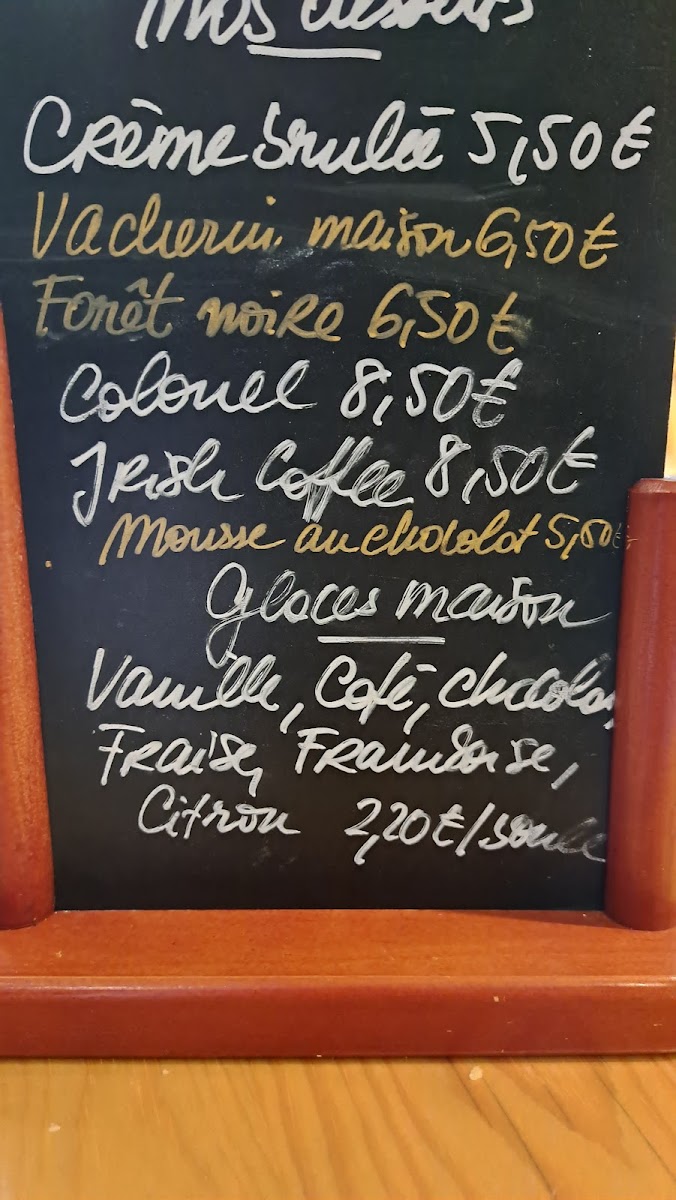 nos desserts
Crème brulée 5,50€
Vacherin maison 6,50€
Forêt noire 6,50€
Colonel 8,50€
Irish Coffee 8,50€
Mousse au chocolat 5,50€
Glaces maison
Vanille, Café, chocolat,
Fraise, Framboise,
Citron 2,20€/boule